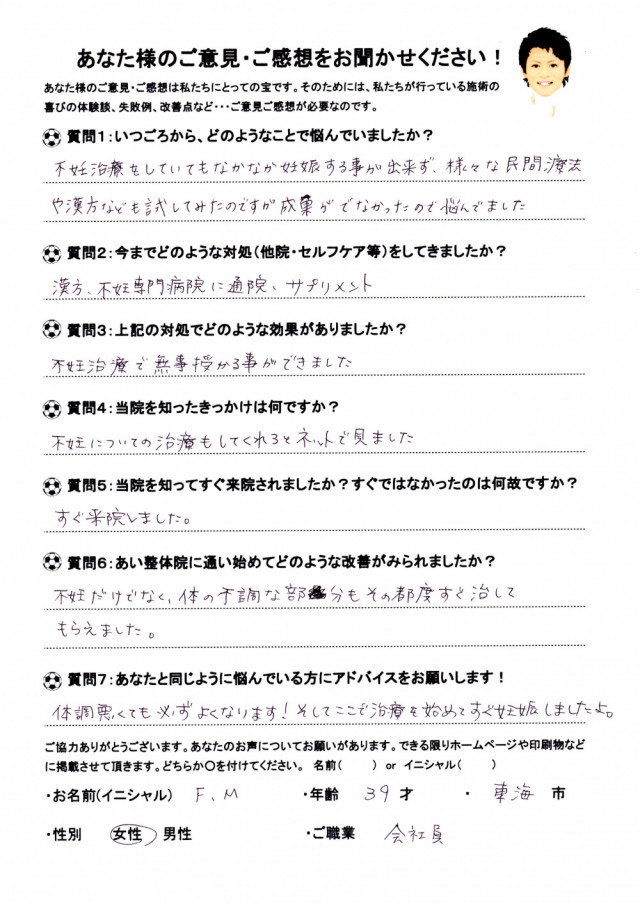 あなた様のご意見・ご感想をお聞かせください！
あなた様のご意見・ご感想は私たちにとっての宝です。そのためには、私たちが行っている施術の
喜びの体験談、失敗例、改善点など・・・ご意見ご感想が必要なのです。
質問1：いつごろから、どのようなことで悩んでいましたか？
不妊治療をしていてもなかなか妊娠する事が出来ず、様々な民間療法
や漢方なども試してみたのですが成果がでなかったので悩んでました
質問2：今までどのような対処（他院・セルフケア等）をしてきましたか？
漢方、不妊専門病院に通院、サプリメント
質問3：上記の対処でどのような効果がありましたか？
不妊治療で無事授かる事ができました
質問4：当院を知ったきっかけは何ですか？
不妊についての治療もしてくれるとネットで見ました
質問5：当院を知ってすぐ来院されましたか？すぐではなかったのは何故ですか？
すぐ来院しました。
質問6：あい整体院に通い始めてどのような改善がみられましたか？
不妊だけでなく、体の不調な部分もその都度すぐ治して
もらえました。
質問7：あなたと同じように悩んでいる方にアドバイスをお願いします！
体調悪くても必ずよくなります！そしてここで治療を始めてすぐ妊娠しましたよ。
ご協力ありがとうございます。あなたのお声についてお願いがあります。できる限りホームページや印刷物など
に掲載させて頂きます。どちらか〇を付けてください。 名前（　　） or イニシャル（　　）
・お名前(イニシャル) F、M ・年齢 39 才 ・ 東海 市
・性別 女性 男性 ・ご職業 会社員